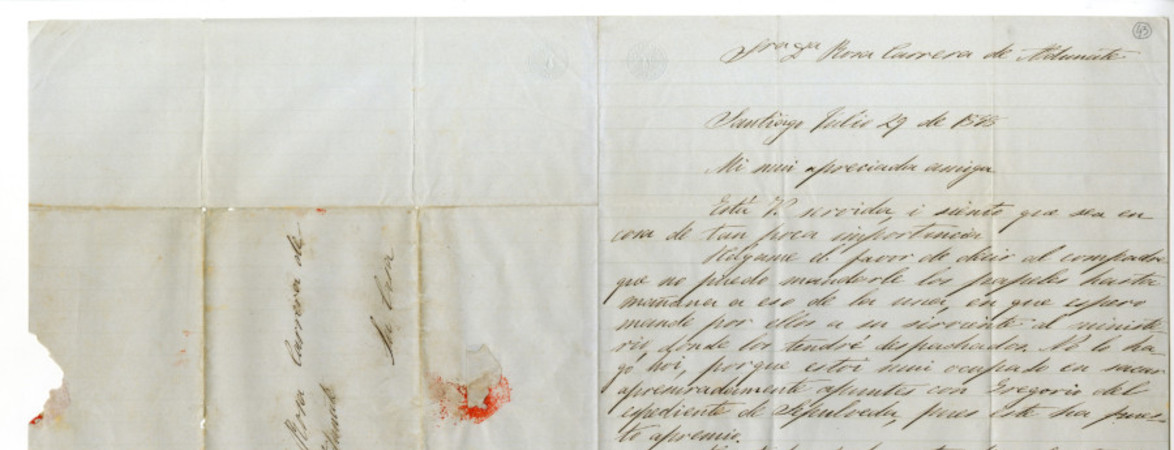 Rosa Carrera de
Su Casa
43
Rosa Carrera de Aldunate
Santiago Julio 29 de
Mi mui apreciada amiga
Está V. servida, i siento que sea en
cosa de tan poca importancia
Hágame el favor de decir al compadre
que no puedo mandarle los papeles hasta
mañana a eso de la una, en que espero
mande por ellos a su sirviente al ministe-
rio, donde los tendré despachados. No lo ha-
go hoi, porque estoi mui ocupado en sacar
apresuradamente apuntes con Gregorio del
espediente de Sepulveda, pues este ha pues-
to apremio.